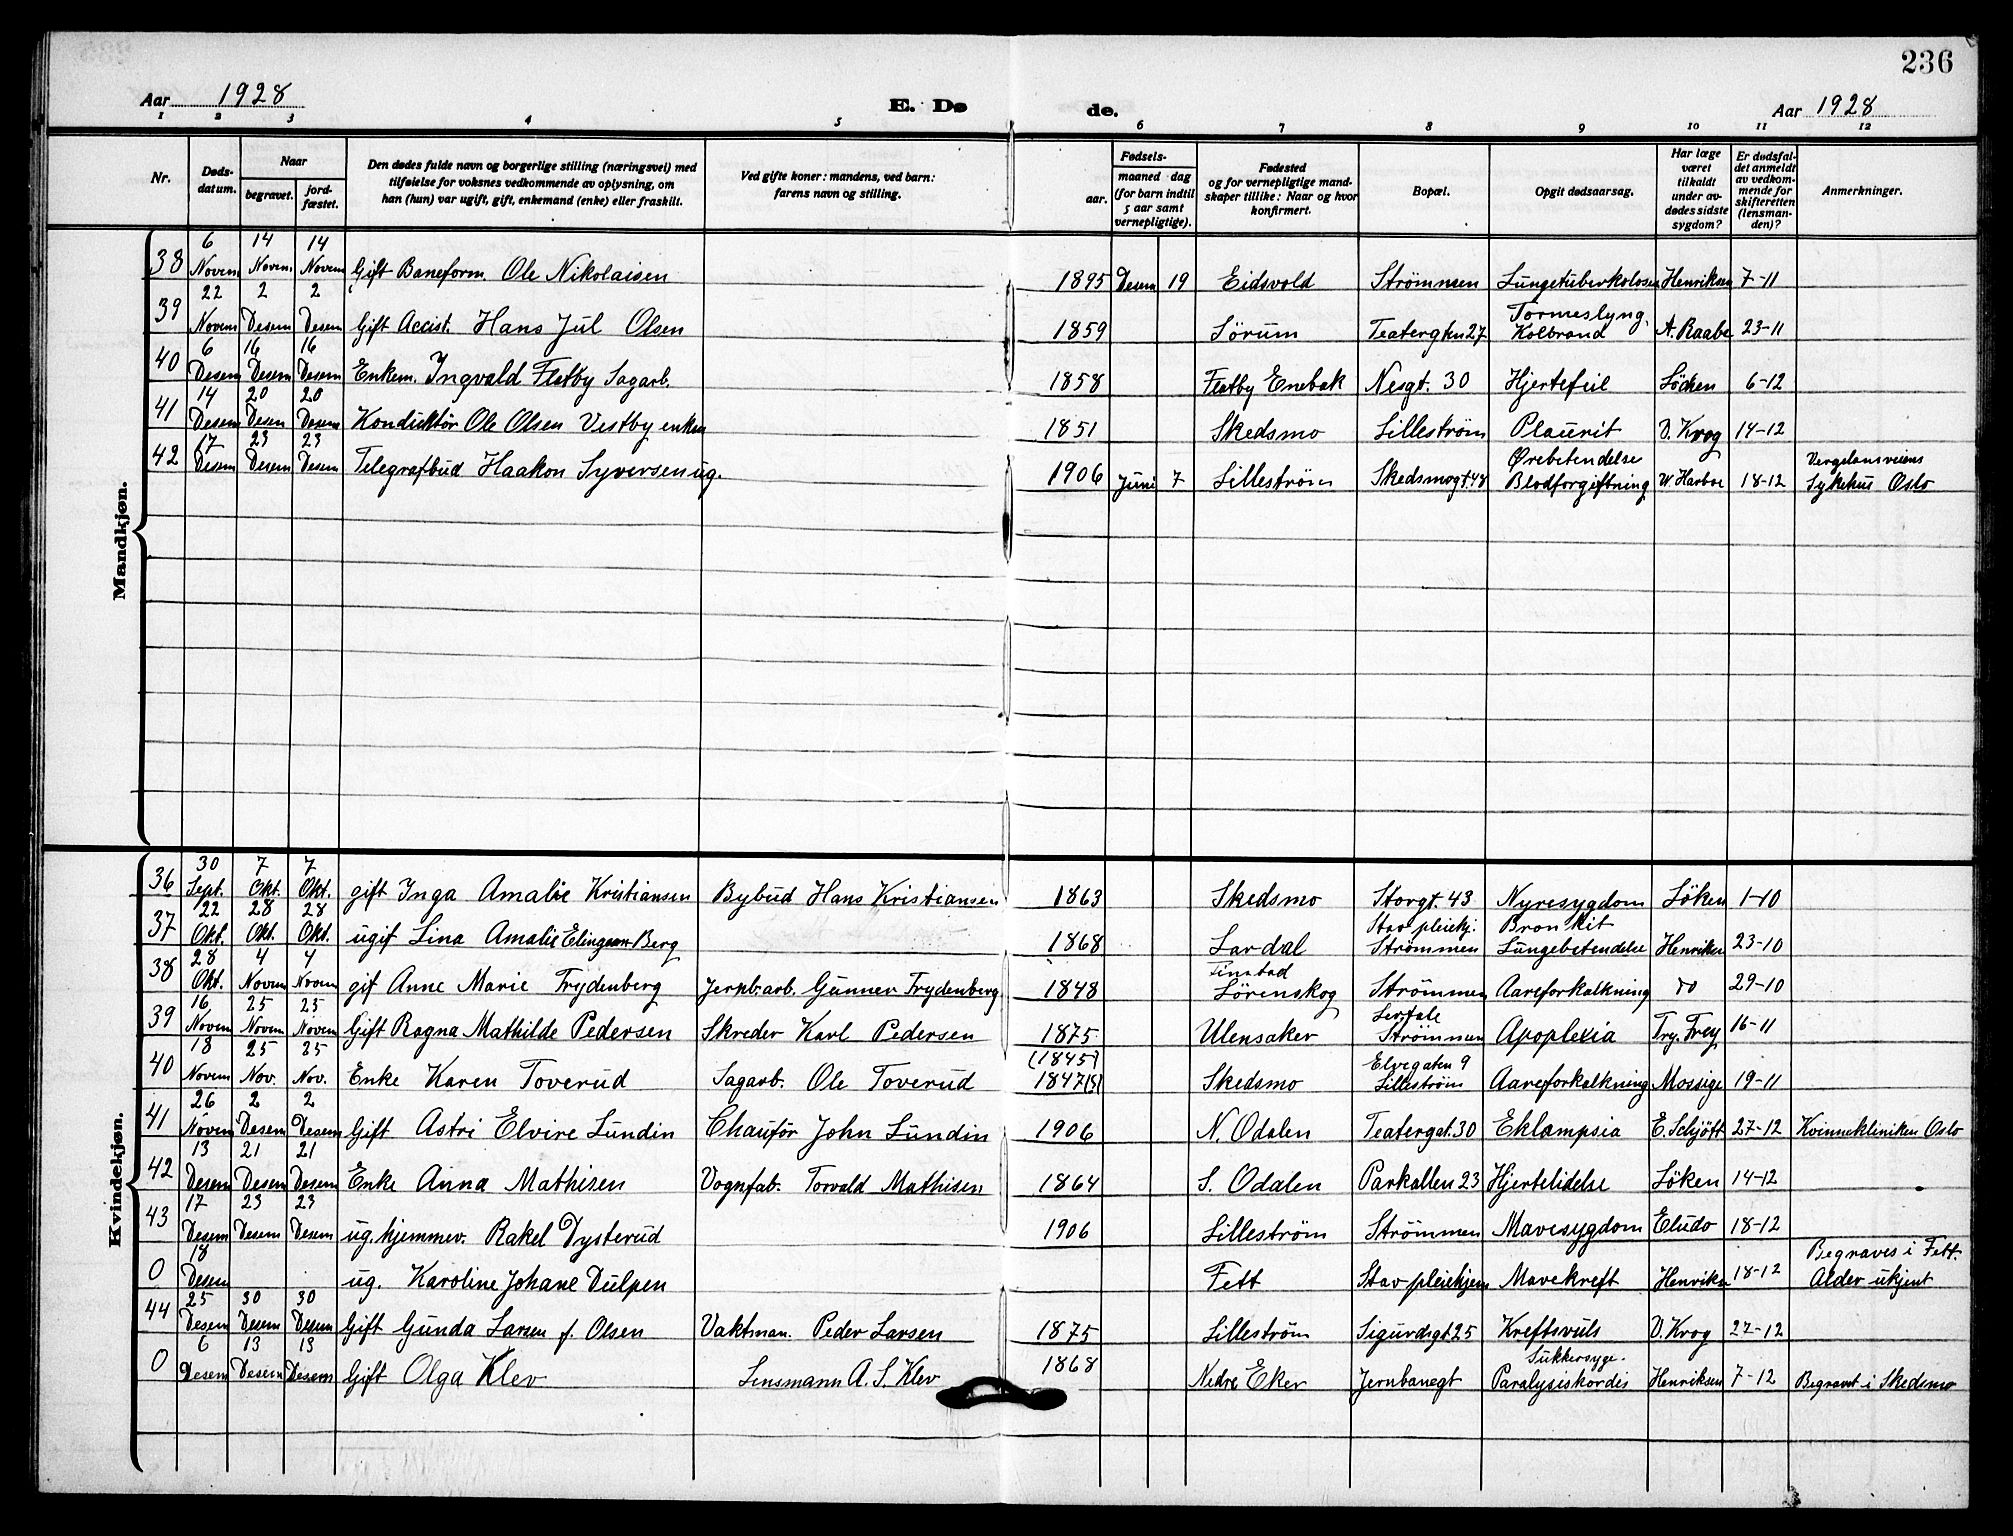 236
Aar 1928 E. Dø de. Aar 1928
1 2 3 4 5 6 7 8 9 10 11 12
Nr. Døds-datum. Naar begravet. jord-fæstet. Den dødes fulde navn og borgerlige stilling (næringsvei) med tilføielse for voksnes vedkommende av oplysning, om han (hun) var ugift, gift, enkemand (enke) eller fraskilt. Ved gifte koner: mandens, ved barn: farens navn og stilling. Fødsels- aar. maaned dag (for barn indtil 5 aar samt vernepligtige). Fødested og for vernepligtige mand-skaper tillike: Naar og hvor konfirmert. Bopæl. Opgit dødsaarsag. Har læge været tilkaldt under av-dødes sidste sygdom? Er dødsfal-det anmeldt av vedkom-mende for skifteretten (lensman-den)? Anmerkninger.
Mandkjøn.
38 6 Novem 14 Novem 14 Novem Gift Baneform. Ole Nikolaisen 1895 Desem 19 Eidsvold Strømmen Lungetuberkolose Henriksen 7-11
39 22 Novem 2 Desem 2 Desem Gift Accist. Hans Jul Olsen 1859 Sörum Teatergten 27 Tormeslyng. Kolbrand A. Raabe 23-11
40 6 Desem 16 Desem 16 Desem Enkem. Ingvald Flatby Sagarb. 1858 Flatby Enebak Nesgt. 30 Hjertefeil Löken 6-12
41 14 Desem 20 Desem 20 Desem Konduktör Ole Olsen Vestby enkem 1851 Skedsmo Lilleström Plaurit D. Krog 14-12
42 17 Desem 23 Desem 23 Desem Telegrafbud Haakon Syversen ug. 1906 Juni 7 Lilleström Skedsmogt. 48 Ørebetendelse Blodforgiftning W. Harboe 18-12 Vergelansveiens Sykehus Oslo
Kvindekjøn.
36 30 Sept. 7 Okt. 7 Okt. gift Inga Amalie Kristiansen Bybud Hans Kristiansen 1863 Skedsmo Storgt. 43 Nyresygdom Löken 1-10
37 22 Okt. 28 Okt. 28 Okt. ugif Lina Amalie Berg 1868 Lardal Stav pleiehj. Strömmen Bronkit Lungebetendelse Henriken 23-10
38 28 Okt. 4 Novem 4 Novem gif Anne Marie Frydenberg Jernb.arb. Gunner Frydenberg 1848 Finstad Lörenskog Strömmen Aareforkalkning do 29-10
39 16 Novem 25 Novem 25 Novem Gift Ragna Mathilde Pedersen Skreder Karl Pedersen 1875 Ulensaker Strömmen Apoplexia Try. Frey 16-11
40 18 Novem 25 Nov. 25 Nov. Enke Karen Toverud Sagarb. Ole Toverud (1845?) 1847(5) Skedsmo Elvegaten 9 Lilleström Aareforkalkning Mossige 19-11
41 26 Novem 2 Desem 2 Desem Gift Astri Elvire Lundin Chauför John Lundin 1906 N. Odalen Teatergat. 30 Eklampsia E. Schjött 27-12 Kvinnekliniken Oslo
42 13 Desem 21 Desem 21 Desem Enke Anna Mathisen Vognfab. Torvald Mathisen 1864 S. Odalen Parkallen 23 Hjertelidelse Löken 14-12
43 17 Desem 23 Desem 23 Desem ug. hjemmev. Rakel Dysterud 1906 Lilleström Strömmen Mavesygdom Eludo 18-12
0 18 Desem ug. Karoline Johane Dulpen Fett Stav pleiehjem Mavekreft Henriksn 18-12 Begraves i Fett. Alder ukjent
44 25 Desem 30 Desem 30 Desem Gift Gunda Larsen f. Olsen Vaktman. Peder Larsen 1875 Lilleström Sigurdsgt. 25 Kreftsvuls D. Krog 27-12
0 6 Desem 13 Desem 13 Desem Gift Olga Klev Lensmann A. S. Klev 1868 Nedre Eker Jernbanegt Sukkersyge. Paralysiskordis Henriksen 7-12 Begravet i Skedsmo